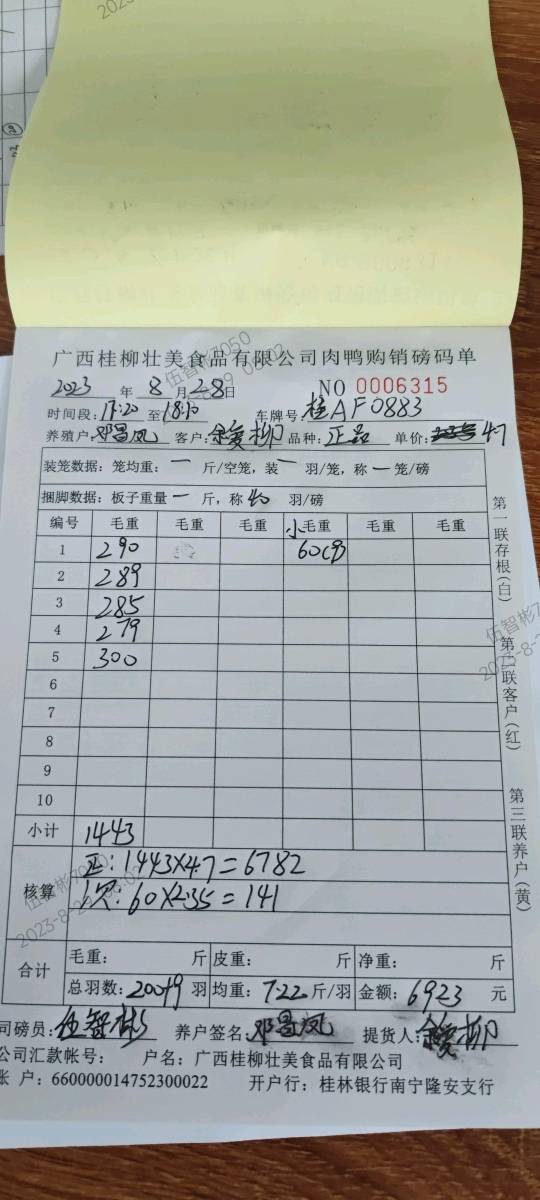 广西桂柳壮美食品有限公司肉鸭购销磅码单
2023 年 8 月 28 日 NO 0006315
时间段: 17:20 至 18:10 车牌号: 桂AF0883
养殖户: 邓昌凤 客户: 柳 品种: 正品 单价: 4.7
装笼数据: 笼均重: 一 斤/空笼, 装 一 羽/笼, 称 一 笼/磅
捆脚数据: 板子重量 一 斤, 称 40 羽/磅
编号 毛重 毛重 毛重 小毛重 毛重 毛重
1 290 60(9)
2 289
3 285
4 279
5 300
6
7
8
9
10
小计 1443
核算
正: 1443×4.7=6782
次: 60×2.35=141
合计
毛重: 斤 皮重: 斤 净重: 斤
总羽数: 200+9 羽 均重: 7.22 斤/羽 金额: 6923 元
司磅员: 伍智彬 养户签名: 邓昌凤 提货人: 柳
公司汇款帐号: 户名: 广西桂柳壮美食品有限公司
账 户: 660000014752300022 开户行: 桂林银行南宁隆安支行
第一联存根(白)
第二联客户(红)
第三联养户(黄)
伍智彬7050